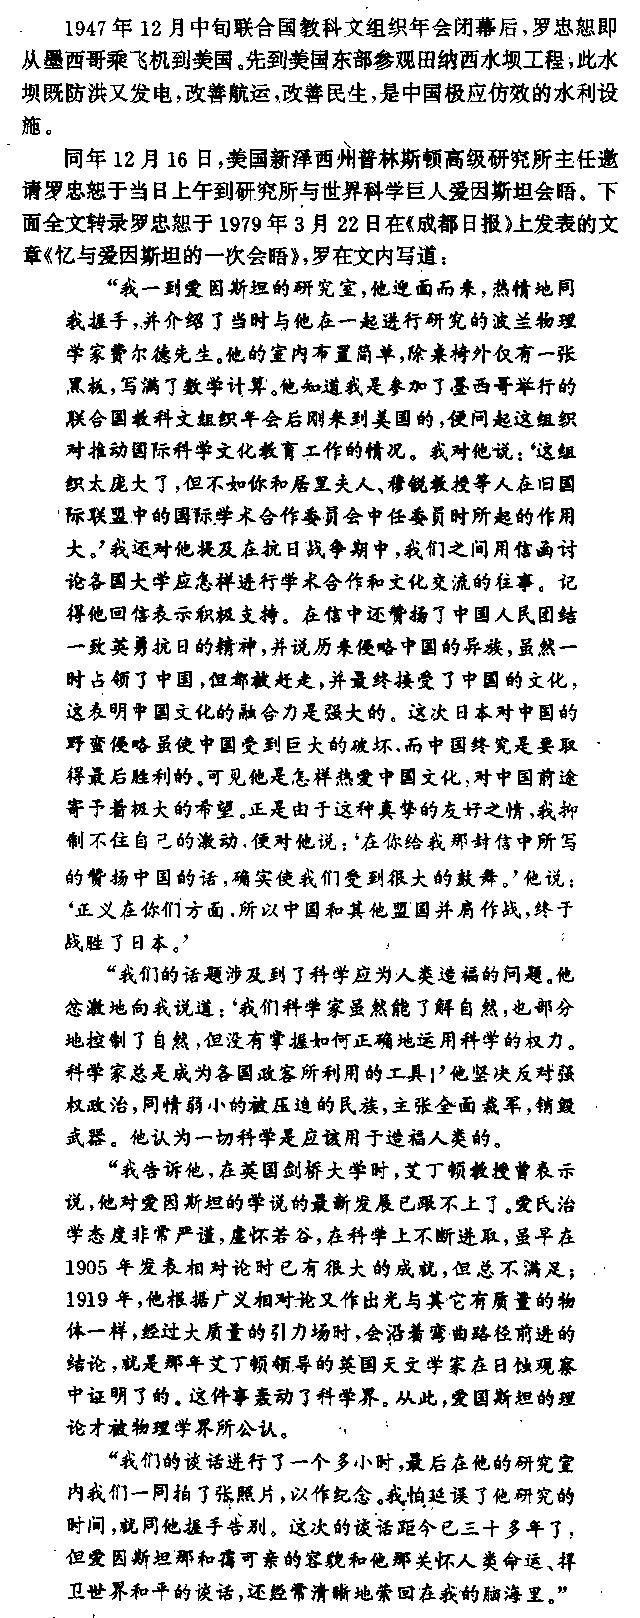 1947 年 12 月中旬联合国教科文组织年会闭幕后,罗忠恕即
从墨西哥乘飞机到美国。先到美国东部参观田纳西水坝工程;此水
坝既防洪又发电,改善航运,改善民生,是中国极应仿效的水利设
施。
同年 12 月 16 日,美国新泽西州普林斯顿高级研究所主任邀
请罗忠恕于当日上午到研究所与世界科学巨人爱因斯坦会晤。下
面全文转录罗忠恕于 1979 年 3 月 22 日在《成都日报》上发表的文
章《忆与爱因斯坦的一次会晤》,罗在文内写道:
“我一到爱因斯坦的研究室,他迎面而来,热情地同
我握手,并介绍了当时与他在一起进行研究的波兰物理
学家费尔德先生。他的室内布置简单,除桌椅外仅有一张
黑板,写满了数学计算。他知道我是参加了墨西哥举行的
联合国教科文组织年会后刚来到美国的,便问起这组织
对推动国际科学文化教育工作的情况。我对他说:‘这组
织太庞大了,但不如你和居里夫人、穆锐教授等人在旧国
际联盟中的国际学术合作委员会中任委员时所起的作用
大。’我还对他提及在抗日战争期中,我们之间用信函讨
论各国大学应怎样进行学术合作和文化交流的往事。记
得他回信表示积极支持。在信中还赞扬了中国人民团结
一致英勇抗日的精神,并说历来侵略中国的异族,虽然一
时占领了中国,但都被赶走,并最终接受了中国的文化,
这表明中国文化的融合力是强大的。这次日本对中国的
野蛮侵略虽使中国受到巨大的破坏,而中国终究是要取
得最后胜利的。可见他是怎样热爱中国文化,对中国前途
寄予着极大的希望。正是由于这种真挚的友好之情,我抑
制不住自己的激动,便对他说:‘在你给我那封信中所写
的赞扬中国的话,确实使我们受到很大的鼓舞。’他说:
‘正义在你们方面,所以中国和其他盟国并肩作战,终于
战胜了日本。’
“我们的话题涉及到了科学应为人类造福的问题。他
忿激地向我说道:‘我们科学家虽然能了解自然,也部分
地控制了自然,但没有掌握如何正确地运用科学的权力。
科学家总是成为各国政客所利用的工具!’他坚决反对强
权政治,同情弱小的被压迫的民族,主张全面裁军,销毁
武器。他认为一切科学是应该用于造福人类的。
“我告诉他,在英国剑桥大学时,艾丁顿教授曾表示
说,他对爱因斯坦的学说的最新发展已跟不上了。爱氏治
学态度非常严谨,虚怀若谷,在科学上不断进取,虽早在
1905 年发表相对论时已有很大的成就,但总不满足;
1919 年,他根据广义相对论又作出光与其它有质量的物
体一样,经过大质量的引力场时,会沿着弯曲路径前进的
结论,就是那年艾丁顿领导的英国天文学家在日蚀观察
中证明了的。这件事轰动了科学界。从此,爱因斯坦的理
论才被物理学界所公认。
“我们的谈话进行了一个多小时,最后在他的研究室
内我们一同拍了张照片,以作纪念。我怕延误了他研究的
时间,就同他握手告别。这次的谈话距今已三十多年了,
但爱因斯坦那和蔼可亲的容貌和他那关怀人类命运、捍
卫世界和平的谈话,还经常清晰地萦回在我的脑海里。”